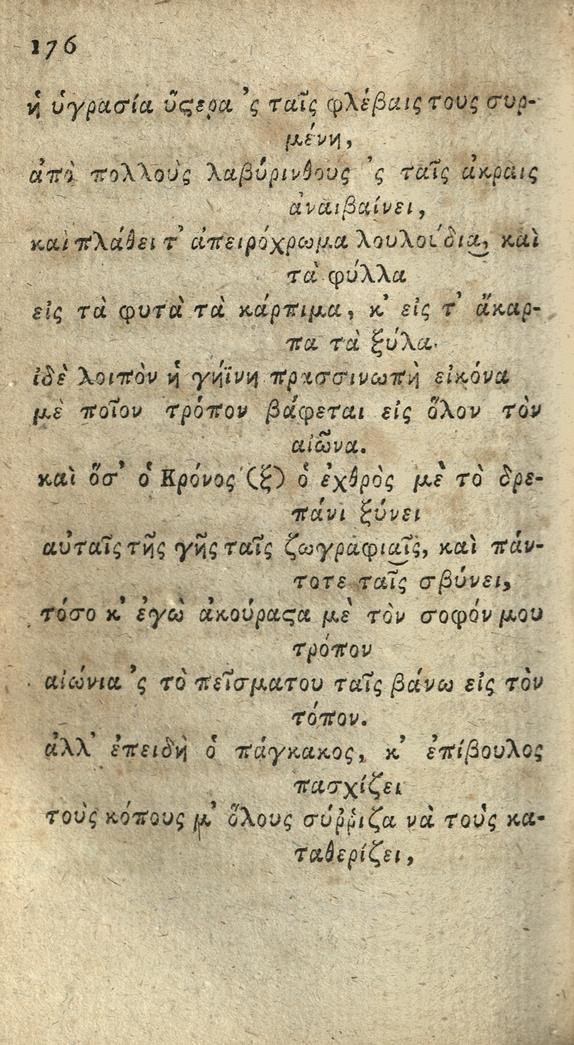 176
ἡ ὑγρασία ὕςερα 'ς ταῖς φλέβαις τους συρ-
μένη,
ἀπὸ πολλοὺς λαβύρινθους 'ς ταῖς ἀκραις
ἀναιβαίνει,
καὶ πλάθει τ' ἀπειρόχρωμα λουλούδια, καὶ
τὰ φύλλα
εἰς τὰ φυτὰ τὰ κάρπιμα, κ' εἰς τ' ἄκαρ-
πα τὰ ξύλα.
ἰδὲ λοιπὸν ἡ γήϊνη πρασσινωπὴ εἰκόνα
μὲ ποῖον τρόπον βάφεται εἰς ὅλον τὸν
αἰῶνα.
καὶ ὅσ' ὁ Κρόνος (ξ) ὁ ἐχθρὸς μὲ τὸ δρε-
πάνι ξύνει
αὐταῖς τῆς γῆς ταῖς ζωγραφιαῖς, καὶ πάν-
τοτε ταῖς σβύνει,
τόσο κ' ἐγὼ ἀκούραςα μὲ τὸν σοφόν μου
τρόπον
αἰώνια 'ς τὸ πεῖσματου ταῖς βάνω εἰς τὸν
τόπον.
ἀλλ' ἐπειδὴ ὁ πάγκακος, κ' ἐπίβουλος
πασχίζει
τοὺς κόπους μ' ὅλους σύῤῥιζα νὰ τοὺς κα-
ταθερίζει,